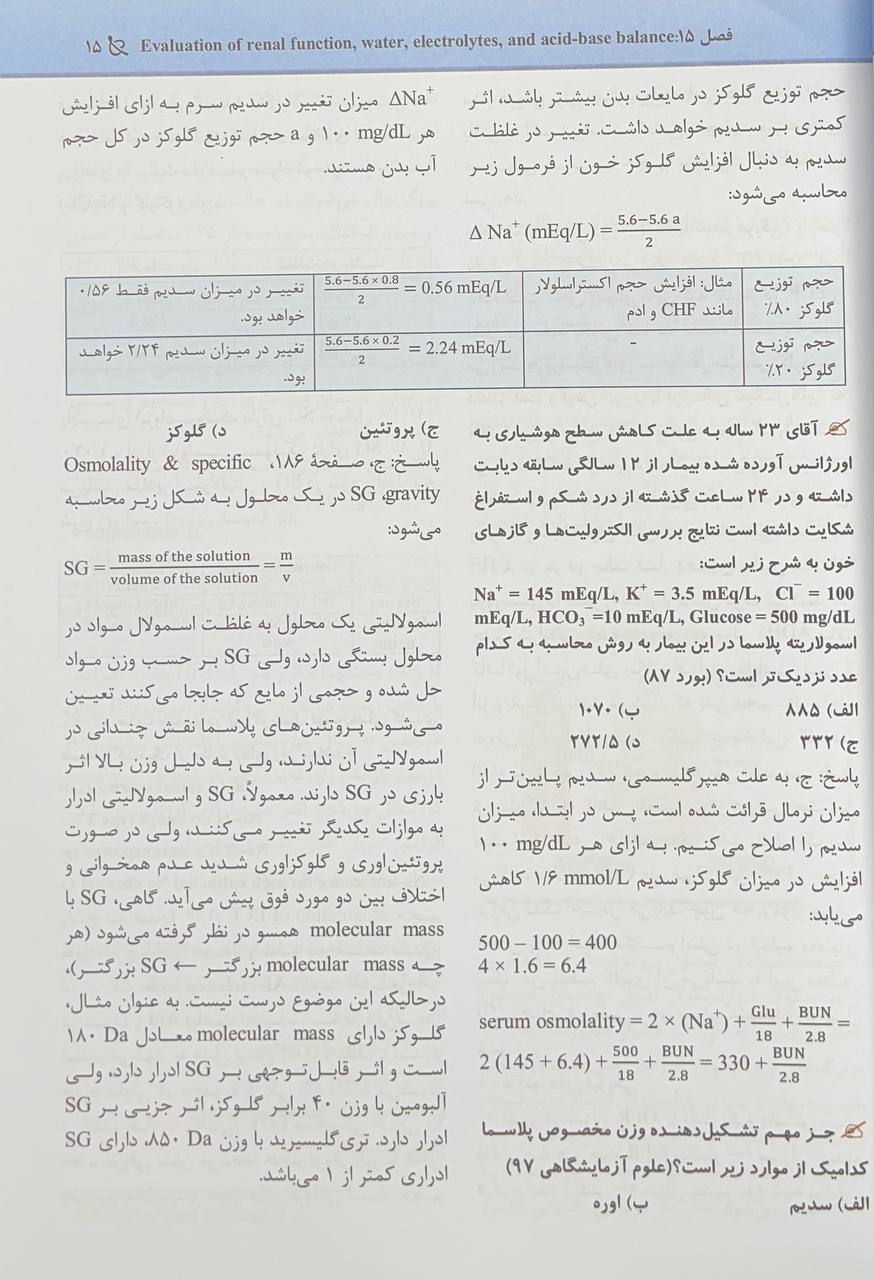 فصل ۱۵:Evaluation of renal function, water, electrolytes, and acid-base balance ۱۵
حجم توزیع گلوکز در مایعات بدن بیشتر باشد، اثر
کمتری بر سدیم خواهد داشت. تغییر در غلظت
سدیم به دنبال افزایش گلوکز خون از فرمول زیر
محاسبه می‌شود:
Δ Na⁺ (mEq/L) = (5.6−5.6 a)/2
ΔNa⁺ میزان تغییر در سدیم سرم به ازای افزایش
هر ۱۰۰ mg/dL و a حجم توزیع گلوکز در کل حجم
آب بدن هستند.
حجم توزیع گلوکز ۸۰٪ | مثال: افزایش حجم اکستراسلولار مانند CHF و ادم | (5.6−5.6 × 0.8)/2 = 0.56 mEq/L | تغییر در میزان سدیم فقط ۰/۵۶ خواهد بود.
حجم توزیع گلوکز ۲۰٪ | - | (5.6−5.6 × 0.2)/2 = 2.24 mEq/L | تغییر در میزان سدیم ۲/۲۴ خواهد بود.
آقای ۲۳ ساله به علت کاهش سطح هوشیاری به
اورژانس آورده شده بیمار از ۱۲ سالگی سابقه دیابت
داشته و در ۲۴ ساعت گذشته از درد شکم و استفراغ
شکایت داشته است نتایج بررسی الکترولیت‌ها و گازهای
خون به شرح زیر است:
Na⁺ = 145 mEq/L, K⁺ = 3.5 mEq/L, Cl⁻ = 100
mEq/L, HCO₃⁻=10 mEq/L, Glucose = 500 mg/dL
اسمولاریته پلاسما در این بیمار به روش محاسبه به کدام
عدد نزدیک‌تر است؟ (بورد ۸۷)
الف) ۸۸۵ ب) ۱۰۷۰
ج) ۳۳۲ د) ۲۷۲/۵
پاسخ: ج، به علت هیپرگلیسمی، سدیم پایین‌تر از
میزان نرمال قرائت شده است، پس در ابتدا، میزان
سدیم را اصلاح می‌کنیم. به ازای هر ۱۰۰ mg/dL
افزایش در میزان گلوکز، سدیم ۱/۶ mmol/L کاهش
می‌یابد:
500 – 100 = 400
4 × 1.6 = 6.4
serum osmolality = 2 × (Na⁺) + Glu/18 + BUN/2.8 =
2 (145 + 6.4) + 500/18 + BUN/2.8 = 330 + BUN/2.8
جز مهم تشکیل‌دهنده وزن مخصوص پلاسما
کدامیک از موارد زیر است؟(علوم آزمایشگاهی ۹۷)
الف) سدیم ب) اوره
ج) پروتئین د) گلوکز
پاسخ: ج، صفحهٔ ۱۸۶، Osmolality & specific
gravity، SG در یک محلول به شکل زیر محاسبه
می‌شود:
SG = mass of the solution/volume of the solution = m/v
اسمولالیتی یک محلول به غلظت اسمولال مواد در
محلول بستگی دارد، ولی SG بر حسب وزن مواد
حل شده و حجمی از مایع که جابجا می‌کنند تعیین
می‌شود. پروتئین‌های پلاسما نقش چندانی در
اسمولالیتی آن ندارند، ولی به دلیل وزن بالا اثر
بارزی در SG دارند. معمولاً، SG و اسمولالیتی ادرار
به موازات یکدیگر تغییر می‌کنند، ولی در صورت
پروتئین‌اوری و گلوکزاوری شدید عدم همخوانی و
اختلاف بین دو مورد فوق پیش می‌آید. گاهی، SG با
molecular mass همسو در نظر گرفته می‌شود (هر
چه molecular mass بزرگتر ← SG بزرگتر)،
درحالیکه این موضوع درست نیست. به عنوان مثال،
گلوکز دارای molecular mass معادل ۱۸۰ Da
است و اثر قابل‌توجهی بر SG ادرار دارد، ولی
آلبومین با وزن ۴۰ برابر گلوکز، اثر جزیی بر SG
ادرار دارد. تری‌گلیسیرید با وزن ۸۵۰ Da، دارای SG
ادراری کمتر از ۱ می‌باشد.